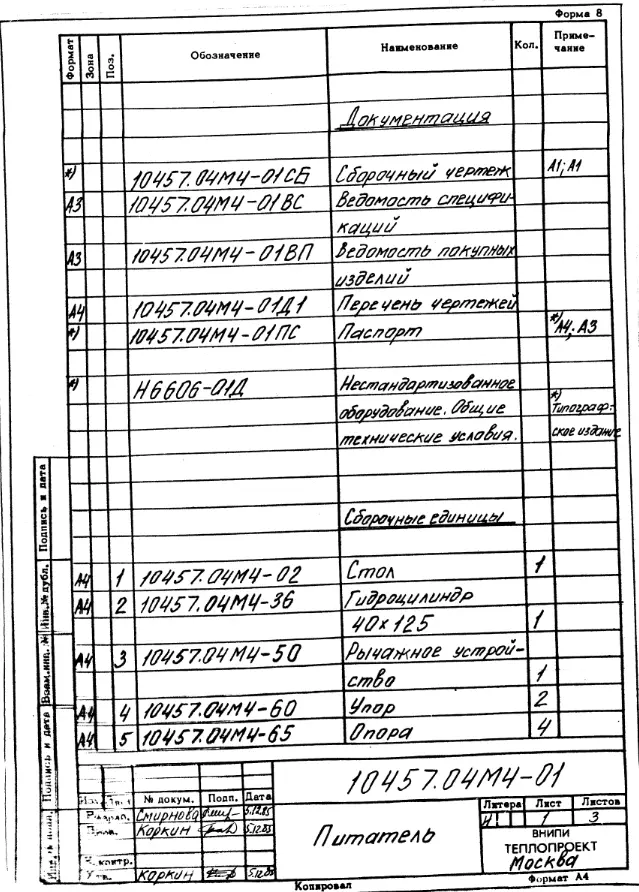 Форма 8
Формат Зона Поз. Обозначение Наименование Кол. Приме-
чание
Документация
*) 10457.04М4-01СБ Сборочный чертеж А1; А1
А3 10457.04М4-01ВС Ведомость специфи-
каций
А3 10457.04М4-01ВП Ведомость покупных
изделий
А4 10457.04М4-01Д1 Перечень чертежей
*) 10457.04М4-01ПС Паспорт *) А4; А3
*) Н6606-01Д Нестандартизованное
оборудование. Общие *) Типограф-
технические условия. ское издание
Сборочные единицы
А4 1 10457.04М4-02 Стол 1
А4 2 10457.04М4-36 Гидроцилиндр
40х125 1
А4 3 10457.04М4-50 Рычажное устрой-
ство 1
А4 4 10457.04М4-60 Упор 2
А4 5 10457.04М4-65 Опора 4
Подпись и дата
Инв.№ дубл.
Взам.инв. №
Подпись и дата
10457.04М4-01
№ докум. Подп. Дата
Разраб. Смирнова 5.12.85
Пров. Коркин 5.12.85
Н. контр.
Утв. Коркин 5.12.85
Питатель
Литера Лист Листов
И 1 3
ВНИПИ
ТЕПЛОПРОЕКТ
Москва
Копировал Формат А4